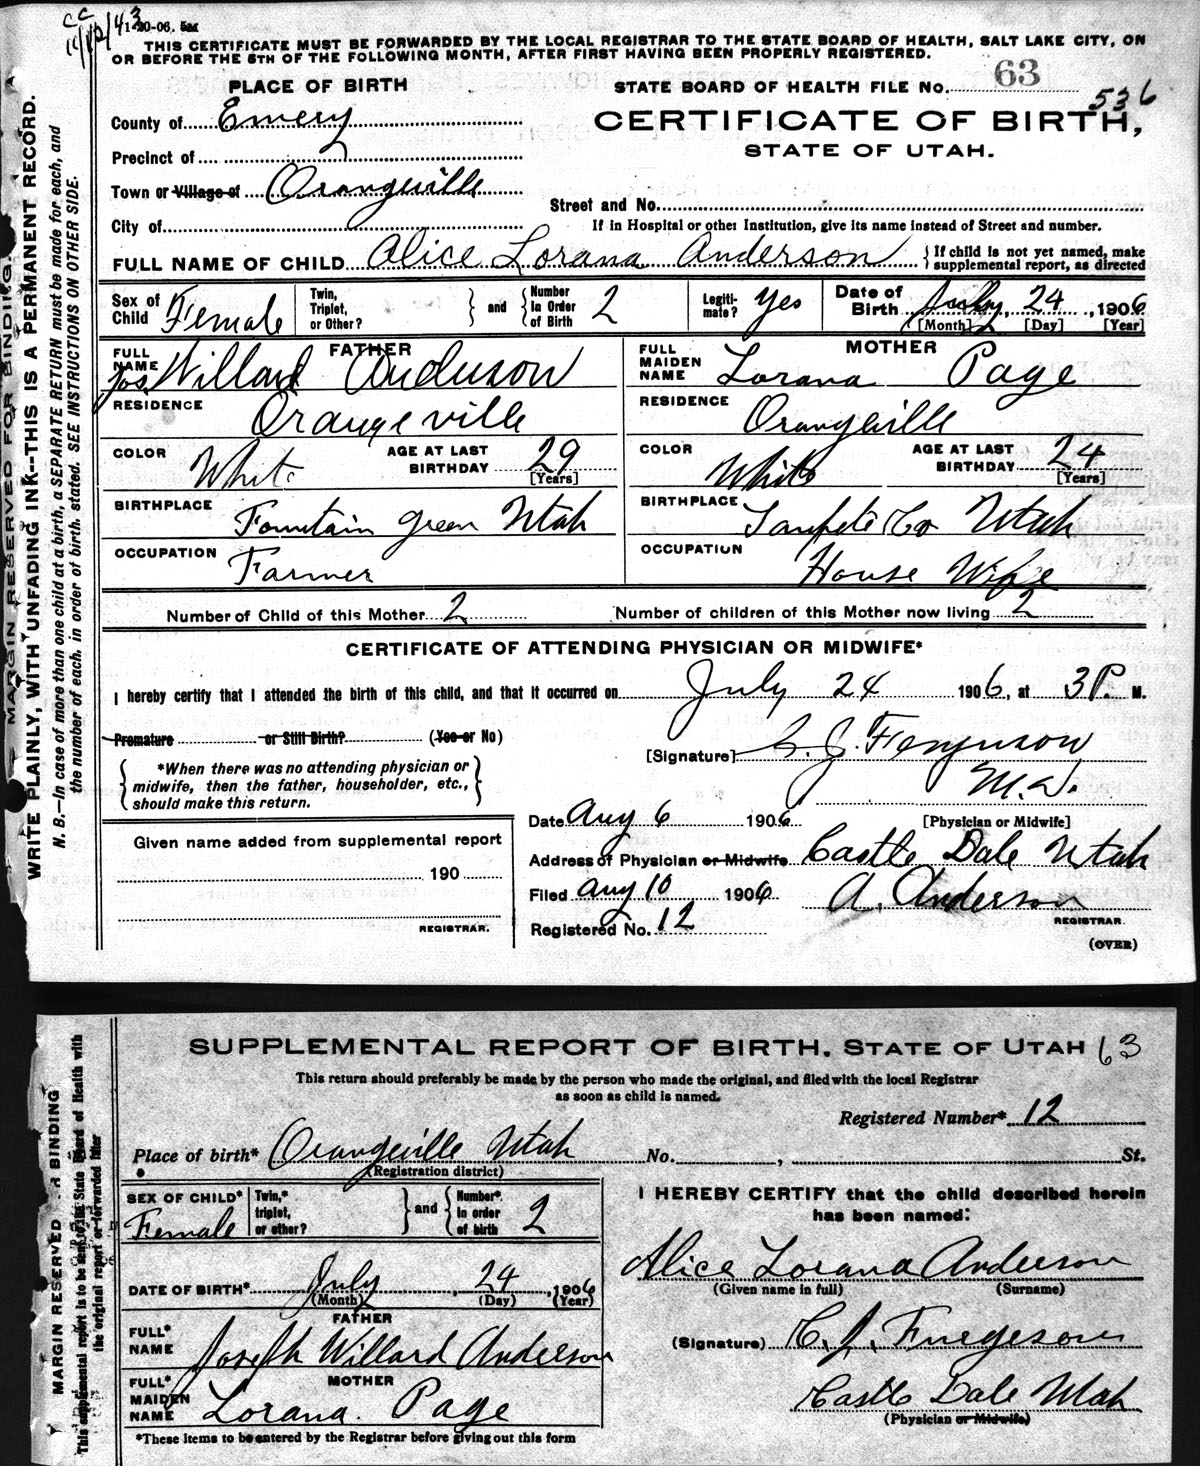 CC
11/12/43
1-20-06. 5M
THIS CERTIFICATE MUST BE FORWARDED BY THE LOCAL REGISTRAR TO THE STATE BOARD OF HEALTH, SALT LAKE CITY, ON
OR BEFORE THE 5TH OF THE FOLLOWING MONTH, AFTER FIRST HAVING BEEN PROPERLY REGISTERED.
PLACE OF BIRTH
STATE BOARD OF HEALTH FILE No. 63
536
County of Emery
CERTIFICATE OF BIRTH,
STATE OF UTAH.
Precinct of
Town or Village of Orangeville
Street and No.
City of
If in Hospital or other Institution, give its name instead of Street and number.
FULL NAME OF CHILD Alice Lorana Anderson {If child is not yet named, make supplemental report, as directed
Sex of Child Female Twin, Triplet, or Other? } and { Number in Order of Birth 2 Legitimate? Yes Date of Birth July, 24, 1906
[Month] [Day] [Year]
FATHER
FULL NAME Jos. Willard Anderson
RESIDENCE Orangeville
COLOR White AGE AT LAST BIRTHDAY 29 [Years]
BIRTHPLACE Fountain Green Utah
OCCUPATION Farmer
MOTHER
FULL MAIDEN NAME Lorana Page
RESIDENCE Orangeville
COLOR White AGE AT LAST BIRTHDAY 24 [Years]
BIRTHPLACE Sanpete Co Utah
OCCUPATION House Wife
Number of Child of this Mother 2 Number of children of this Mother now living 2
CERTIFICATE OF ATTENDING PHYSICIAN OR MIDWIFE*
I hereby certify that I attended the birth of this child, and that it occurred on July 24 1906, at 3 P. M.
Premature or Still Birth? (Yes or No)
[Signature] C. J. Ferguson
M.D.
[Physician or Midwife]
*When there was no attending physician or
midwife, then the father, householder, etc.,
should make this return.
Date Aug 6 1906
Address of Physician or Midwife Castle Dale Utah
Filed Aug 10 1906 A. Anderson
REGISTRAR.
Registered No. 12
(OVER)
Given name added from supplemental report
190
REGISTRAR.
MARGIN RESERVED FOR BINDING.
WRITE PLAINLY, WITH UNFADING INK--THIS IS A PERMANENT RECORD.
N. B.—In case of more than one child at a birth, a SEPARATE RETURN must be made for each, and
the number of each, in order of birth, stated. SEE INSTRUCTIONS ON OTHER SIDE.
SUPPLEMENTAL REPORT OF BIRTH. STATE OF UTAH 63
This return should preferably be made by the person who made the original, and filed with the local Registrar
as soon as child is named.
Registered Number* 12
Place of birth* Orangeville Utah No. , St.
(Registration district)
SEX OF CHILD* Female Twin,* triplet, or other? } and { Number* in order of birth 2
DATE OF BIRTH* July, 24, 1906
(Month) (Day) (Year)
FATHER
FULL* NAME Joseph Willard Anderson
MOTHER
FULL* MAIDEN NAME Lorana Page
*These items to be entered by the Registrar before giving out this form
I HEREBY CERTIFY that the child described herein
has been named:
Alice Lorana Anderson
(Given name in full) (Surname)
(Signature) C. J. Furgeson
Castle Dale Utah
(Physician or Midwife)
MARGIN RESERVED FOR BINDING
This supplemental report is to be sent to the State Board of Health with
the original report or forwarded later